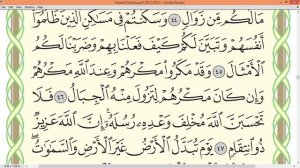 Mushaf Madina.pdf (SECURED) - Adobe Reader
مَالَكُم مِّن زَوَالٍ ٤٤ وَسَكَنتُمْ فِى مَسَٰكِنِ ٱلَّذِينَ ظَلَمُوٓا۟
أَنفُسَهُمْ وَتَبَيَّنَ لَكُمْ كَيْفَ فَعَلْنَا بِهِمْ وَضَرَبْنَا لَكُمُ
ٱلْأَمْثَالَ ٤٥ وَقَدْ مَكَرُوا۟ مَكْرَهُمْ وَعِندَ ٱللَّهِ مَكْرُهُمْ
وَإِن كَانَ مَكْرُهُمْ لِتَزُولَ مِنْهُ ٱلْجِبَالُ ٤٦ فَلَا
تَحْسَبَنَّ ٱللَّهَ مُخْلِفَ وَعْدِهِۦ رُسُلَهُۥٓ إِنَّ ٱللَّهَ عَزِيزٌ
ذُو ٱنتِقَامٍ ٤٧ يَوْمَ تُبَدَّلُ ٱلْأَرْضُ غَيْرَ ٱلْأَرْضِ وَٱلسَّمَٰوَٰتُ